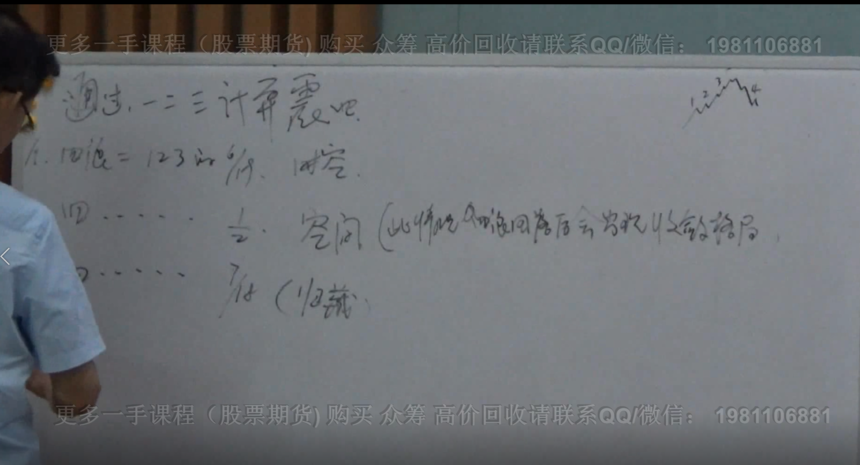 更多一手课程（股票期货) 购买 众筹 高价回收请联系QQ/微信： 1981106881
通过一二三计算震
1 2 3 4
1. 四浪 = 123的 时空.
四 ····· 1/2. 空间 (此情况四浪回落后会出现收敛格局.
····· (归藏)
更多一手课程（股票期货) 购买 众筹 高价回收请联系QQ/微信： 1981106881